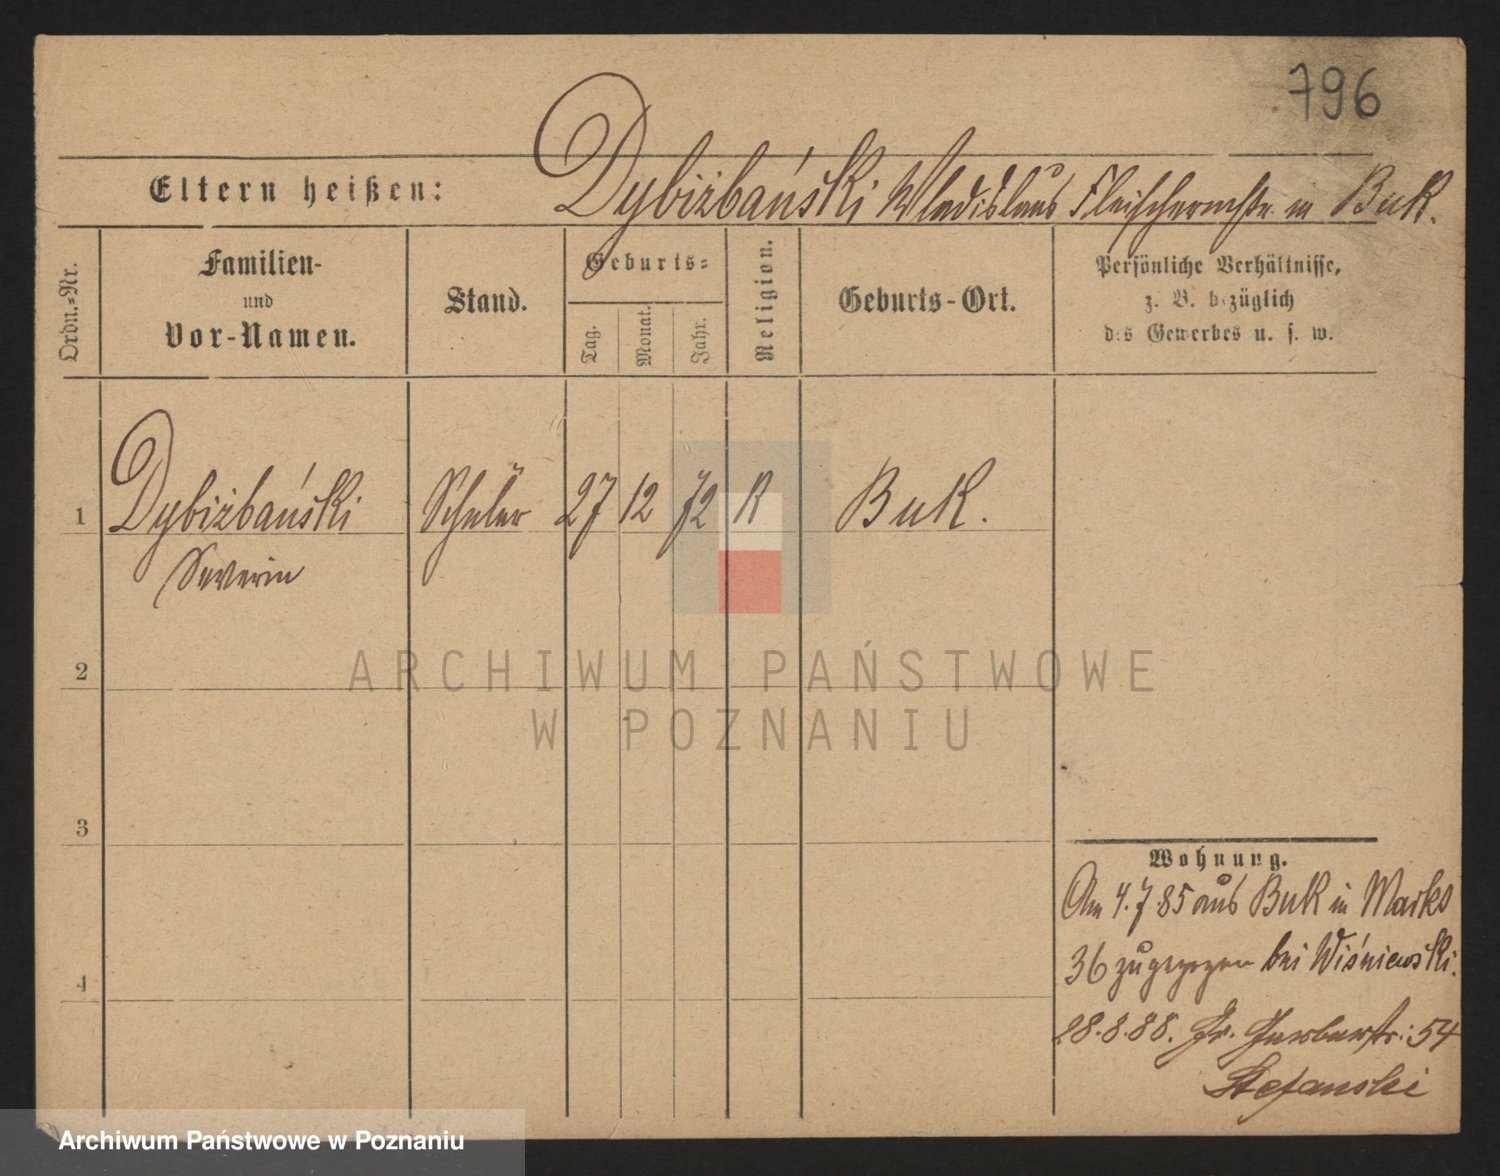 796
Eltern heißen: Dybiżbański Wladislaus Fleischermstr. in Buk.
Ordn.=Nr.
Familien-
und
Vor-Namen.
Stand.
Geburts=
Tag.
Monat.
Jahr.
Religion.
Geburts-Ort.
Persönliche Verhältnisse,
z. B. bezüglich
des Gewerbes u. s. w.
1 Dybiżbański Schüler 27 12 72 K Buk.
Severin
2
3
4
Wohnung.
Am 4.7.85 aus Buk in Marks
36 zugezogen bei Wiśniewski.
28.8.88. Gr. Gerberstr: 54
Stefanski
ARCHIWUM PAŃSTWOWE
W POZNANIU
Archiwum Państwowe w Poznaniu